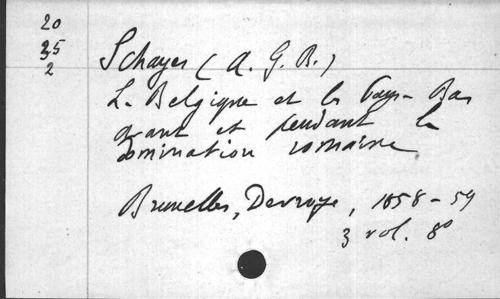 20
35
2
Schayes (A. G. B.)
La Belgique et les Pays-Bas
avant et pendant la
domination romaine
Bruxelles, Devroye, 1858-59
3 vol. 8º